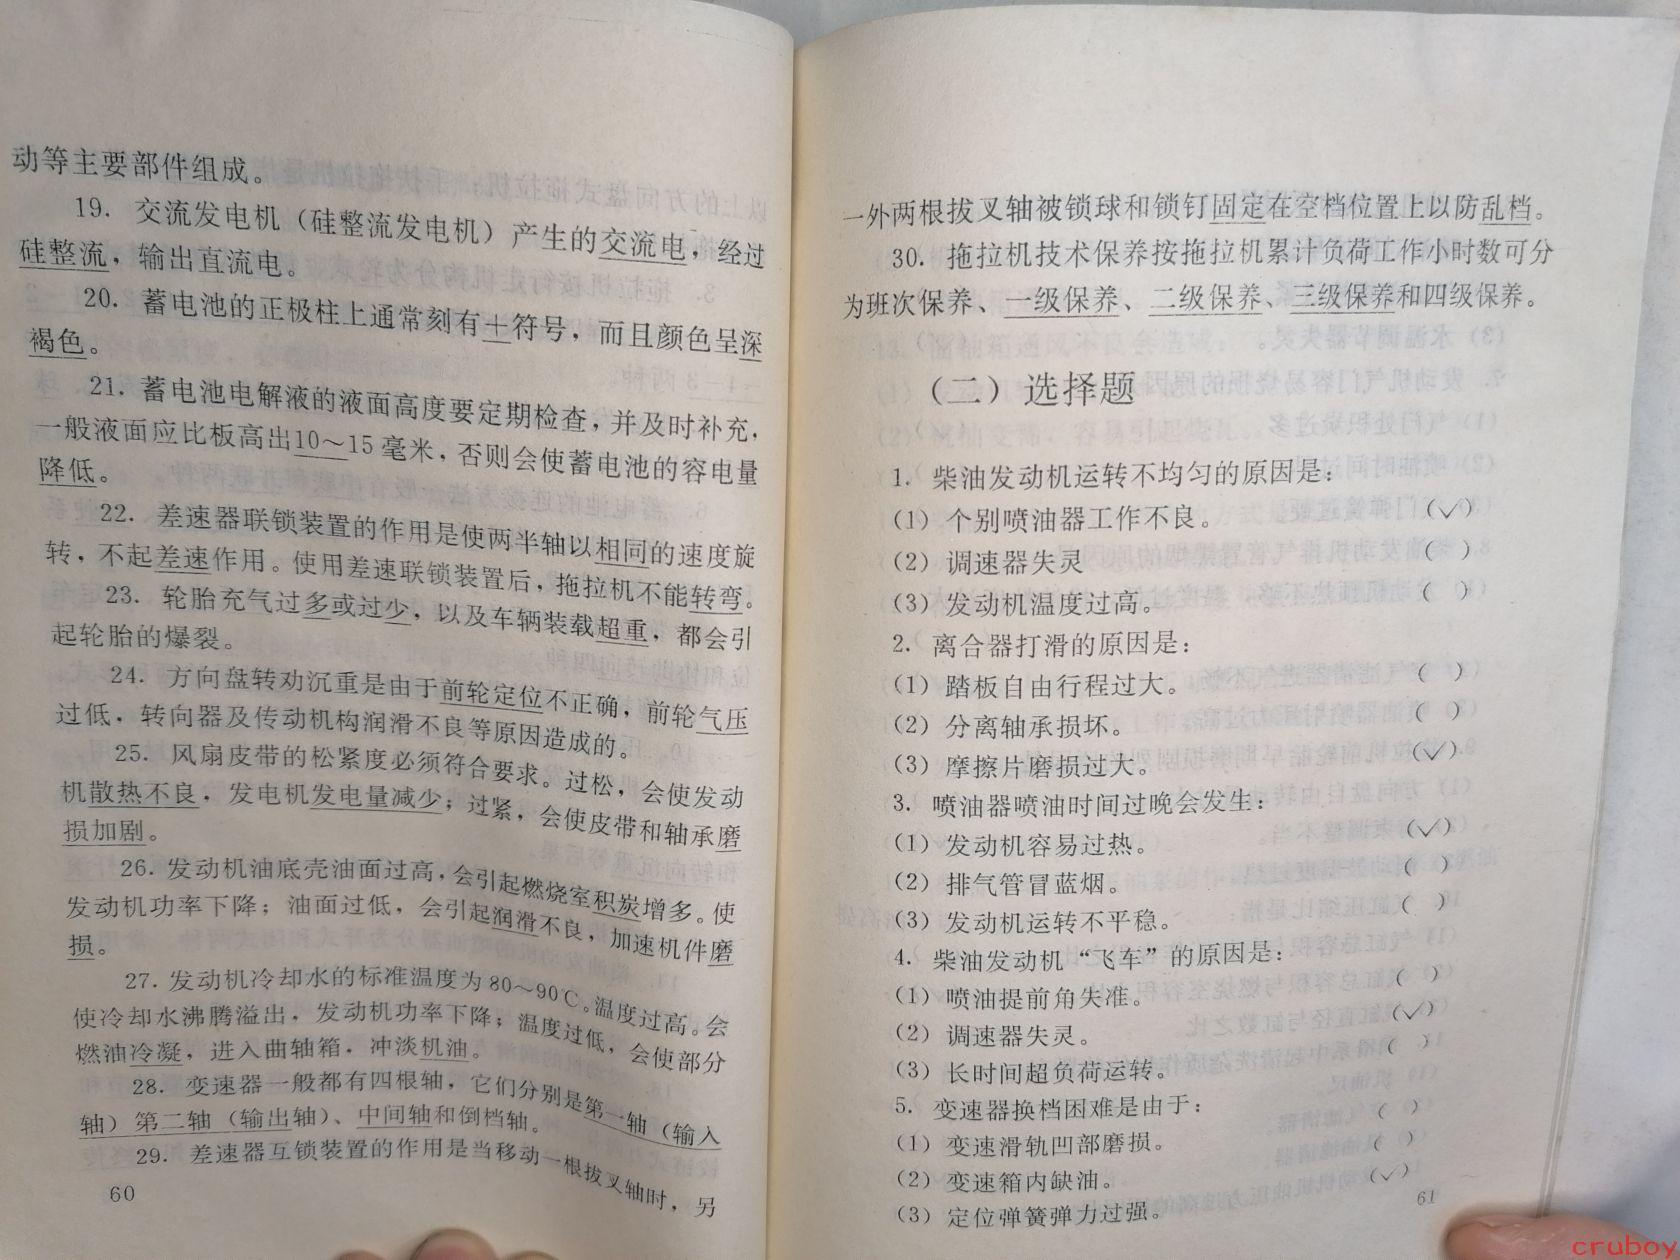 动等主要部件组成。
19. 交流发电机（硅整流发电机）产生的交流电，经过
硅整流，输出直流电。
20. 蓄电池的正极柱上通常刻有＋符号，而且颜色呈深
褐色。
21. 蓄电池电解液的液面高度要定期检查，并及时补充，
一般液面应比板高出10～15毫米，否则会使蓄电池的容电量
降低。
22. 差速器联锁装置的作用是使两半轴以相同的速度旋
转，不起差速作用。使用差速联锁装置后，拖拉机不能转弯。
23. 轮胎充气过多或过少，以及车辆装载超重，都会引
起轮胎的爆裂。
24. 方向盘转动沉重是由于前轮定位不正确，前轮气压
过低，转向器及传动机构润滑不良等原因造成的。
25. 风扇皮带的松紧度必须符合要求。过松，会使发动
机散热不良，发电机发电量减少；过紧，会使皮带和轴承磨
损加剧。
26. 发动机油底壳油面过高，会引起燃烧室积炭增多。使
发动机功率下降；油面过低，会引起润滑不良，加速机件磨
损。
27. 发动机冷却水的标准温度为80～90℃。温度过高。会
使冷却水沸腾溢出，发动机功率下降；温度过低，会使部分
燃油冷凝，进入曲轴箱，冲淡机油。
28. 变速器一般都有四根轴，它们分别是第一轴（输入
轴）第二轴（输出轴）、中间轴和倒档轴。
29. 差速器互锁装置的作用是当移动一根拔叉轴时，另
60
一外两根拔叉轴被锁球和锁钉固定在空档位置上以防乱档。
30. 拖拉机技术保养按拖拉机累计负荷工作小时数可分
为班次保养、一级保养、二级保养、三级保养和四级保养。
（二）选择题
1. 柴油发动机运转不均匀的原因是：
（1）个别喷油器工作不良。（√）
（2）调速器失灵（ ）
（3）发动机温度过高。（ ）
2. 离合器打滑的原因是：
（1）踏板自由行程过大。（ ）
（2）分离轴承损坏。（ ）
（3）摩擦片磨损过大。（√）
3. 喷油器喷油时间过晚会发生：
（1）发动机容易过热。（√）
（2）排气管冒蓝烟。（ ）
（3）发动机运转不平稳。（ ）
4. 柴油发动机“飞车”的原因是：
（1）喷油提前角失准。（ ）
（2）调速器失灵。（√）
（3）长时间超负荷运转。（ ）
5. 变速器换档困难是由于：
（1）变速滑轨凹部磨损。（ ）
（2）变速箱内缺油。（ ）
（3）定位弹簧弹力过强。（√）
61
cruboy